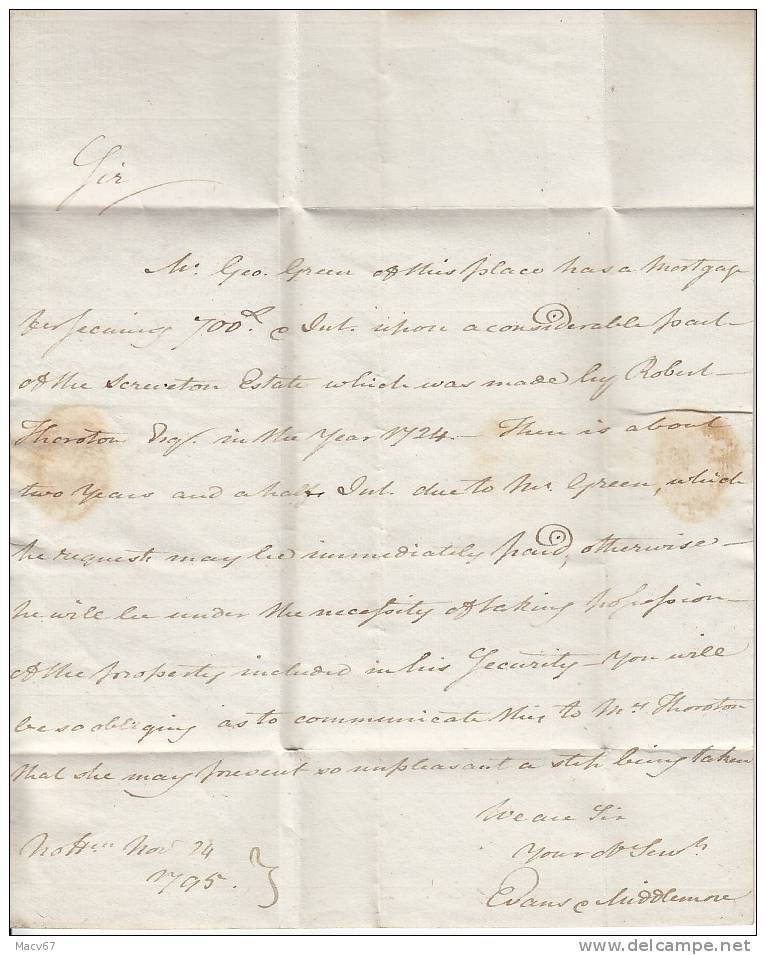 Sir
Mr. Geo. Green of this place has a Mortgage
for securing 700£. & Int. upon a considerable part
of the Screveton Estate which was made by Robert
Thoroton Esqr. in the Year 1724. – There is about
two Years and a half's Int. due to Mr. Green, which
he requests may be immediately paid, otherwise
he will be under the necessity of taking possession
of the property included in his Security – You will
be so obliging as to communicate this to Mrs Thoroton
that she may prevent so unpleasant a step being taken
We are Sir
Your Ob. Servts.
Evans & Middlemore
Nottm Nov 24
1795.
Macv67
www.delcampe.net